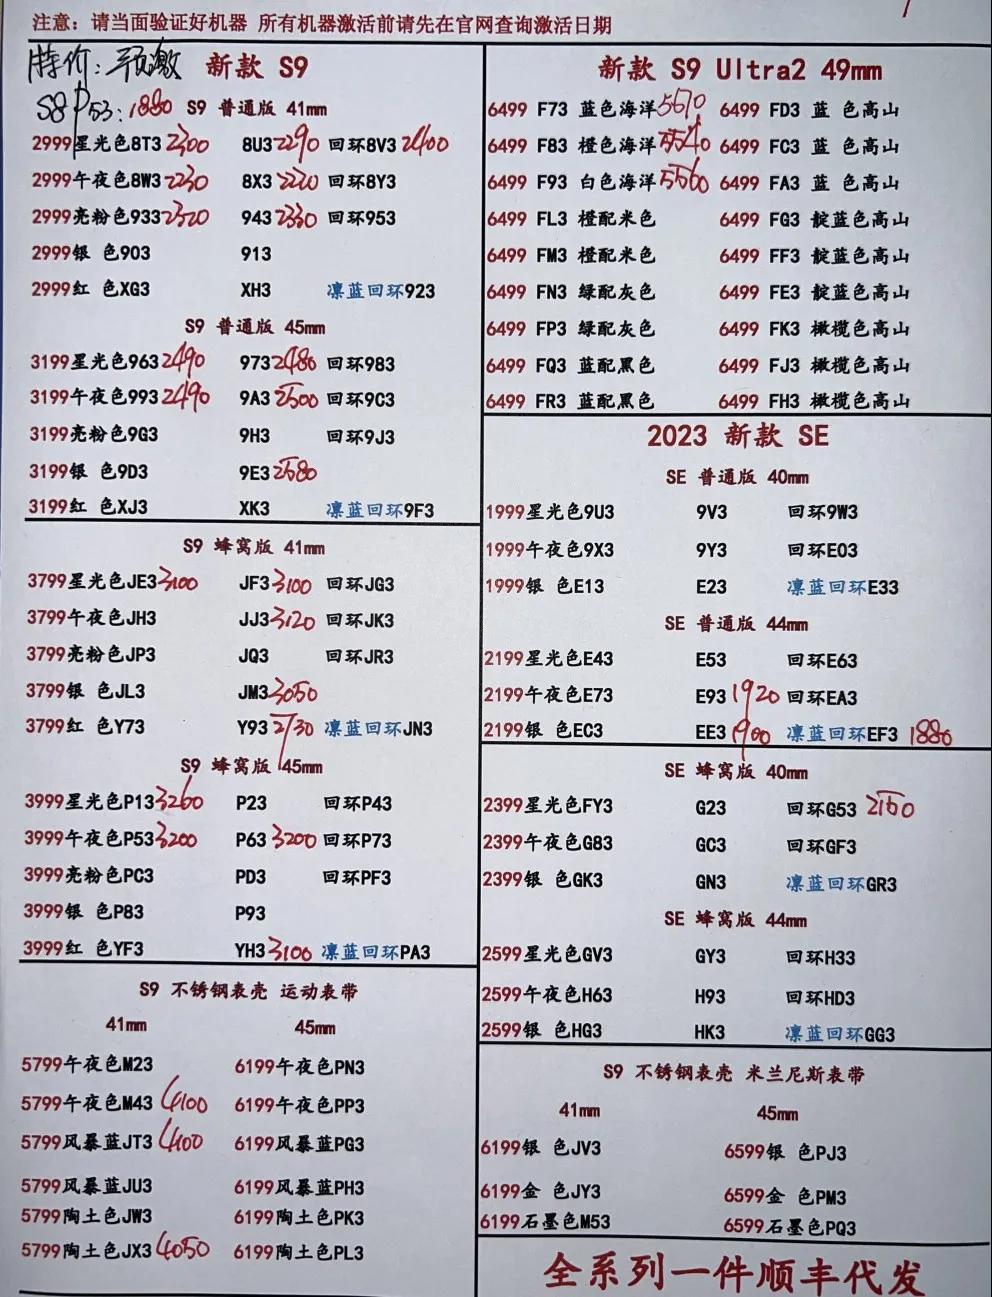 注意：请当面验证好机器 所有机器激活前请先在官网查询激活日期
特价：预激
S8 P53：1880
新款 S9
S9 普通版 41mm
2999星光色8T3 2300 8U3 2290 回环8V3 2400
2999午夜色8W3 2230 8X3 2220 回环8Y3
2999亮粉色933 2320 943 2330 回环953
2999银 色903 913
2999红 色XG3 XH3 凛蓝回环923
S9 普通版 45mm
3199星光色963 2490 973 2480 回环983
3199午夜色993 2490 9A3 2500 回环9C3
3199亮粉色9G3 9H3 回环9J3
3199银 色9D3 9E3 2580
3199红 色XJ3 XK3 凛蓝回环9F3
S9 蜂窝版 41mm
3799星光色JE3 3100 JF3 3100 回环JG3
3799午夜色JH3 JJ3 3120 回环JK3
3799亮粉色JP3 JQ3 回环JR3
3799银 色JL3 JM3 3050
3799红 色Y73 Y93 2730 凛蓝回环JN3
S9 蜂窝版 45mm
3999星光色P13 3260 P23 回环P43
3999午夜色P53 3200 P63 3200 回环P73
3999亮粉色PC3 PD3 回环PF3
3999银 色P83 P93
3999红 色YF3 YH3 3100 凛蓝回环PA3
S9 不锈钢表壳 运动表带
41mm 45mm
5799午夜色M23 6199午夜色PN3
5799午夜色M43 4100 6199午夜色PP3
5799风暴蓝JT3 4100 6199风暴蓝PG3
5799风暴蓝JU3 6199风暴蓝PH3
5799陶土色JW3 6199陶土色PK3
5799陶土色JX3 4050 6199陶土色PL3
新款 S9 Ultra2 49mm
6499 F73 蓝色海洋 5670 6499 FD3 蓝 色高山
6499 F83 橙色海洋 5540 6499 FC3 蓝 色高山
6499 F93 白色海洋 5560 6499 FA3 蓝 色高山
6499 FL3 橙配米色 6499 FG3 靛蓝色高山
6499 FM3 橙配米色 6499 FF3 靛蓝色高山
6499 FN3 绿配灰色 6499 FE3 靛蓝色高山
6499 FP3 绿配灰色 6499 FK3 橄榄色高山
6499 FQ3 蓝配黑色 6499 FJ3 橄榄色高山
6499 FR3 蓝配黑色 6499 FH3 橄榄色高山
2023 新款 SE
SE 普通版 40mm
1999星光色9U3 9V3 回环9W3
1999午夜色9X3 9Y3 回环E03
1999银 色E13 E23 凛蓝回环E33
SE 普通版 44mm
2199星光色E43 E53 回环E63
2199午夜色E73 E93 1920 回环EA3
2199银 色EC3 EE3 1900 凛蓝回环EF3 1880
SE 蜂窝版 40mm
2399星光色FY3 G23 回环G53 2160
2399午夜色G83 GC3 回环GF3
2399银 色GK3 GN3 凛蓝回环GR3
SE 蜂窝版 44mm
2599星光色GV3 GY3 回环H33
2599午夜色H63 H93 回环HD3
2599银 色HG3 HK3 凛蓝回环GG3
S9 不锈钢表壳 米兰尼斯表带
41mm 45mm
6199银 色JV3 6599银 色PJ3
6199金 色JY3 6599金 色PM3
6199石墨色M53 6599石墨色PQ3
全系列一件顺丰代发